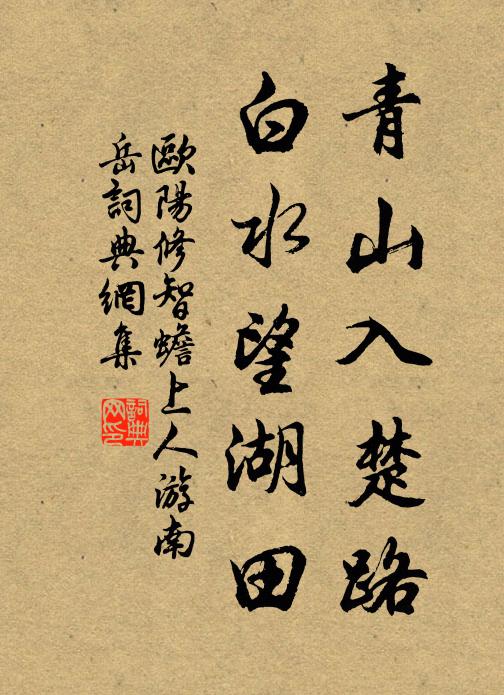 青山入楚路
白水望湖田
歐陽修智蟾上人游南
岳詞典網集
詞典
网印